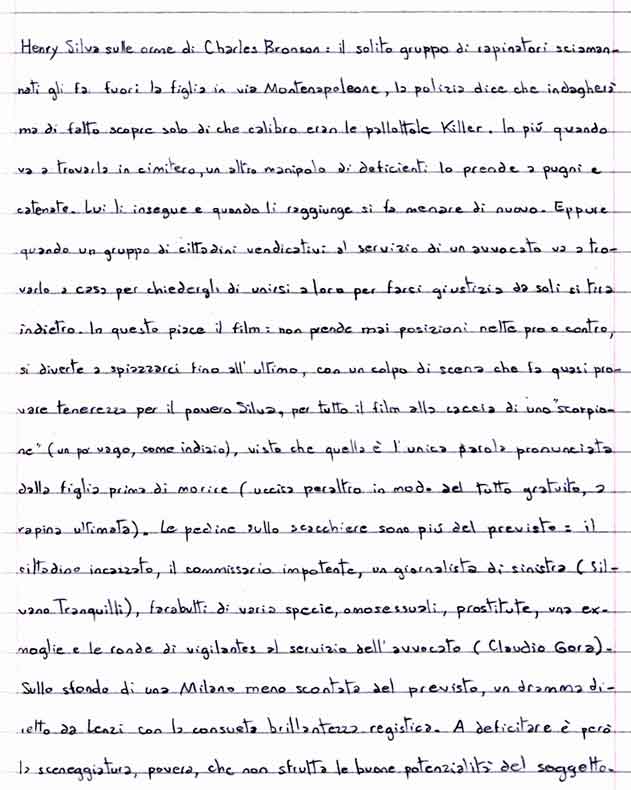 Henry Silva sulle orme di Charles Bronson: il solito gruppo di rapinatori sciaman-
nati gli fa fuori la figlia in via Montenapoleone, la polizia dice che indagherà
ma di fatto scopre solo di che calibro eran le pallottole Killer. In più quando
va a trovarla in cimitero, un altro manipolo di deficienti lo prende a pugni e
catenate. Lui li insegue e quando li raggiunge si fa menare di nuovo. Eppure
quando un gruppo di cittadini vendicativi al servizio di un avvocato va a tro-
varlo a casa per chiedergli di unirsi a loro per farci giustizia da soli si tira
indietro. In questo piace il film: non prende mai posizioni nette pro o contro,
si diverte a spiazzarci fino all'ultimo, con un colpo di scena che fa quasi pro-
vare tenerezza per il povero Silva, per tutto il film alla caccia di uno "scorpio-
ne" (un po' vago, come indizio), visto che quella è l'unica parola pronunciata
dalla figlia prima di morire (uccisa peraltro in modo del tutto gratuito, a
rapina ultimata). Le pedine sullo scacchiere sono più del previsto: il
cittadino incazzato, il commissario impotente, un giornalista di sinistra (Sil-
vano Tranquilli), farabutti di varia specie, omosessuali, prostitute, una ex-
moglie e le ronde di vigilantes al servizio dell'avvocato (Claudio Gora).
Sullo sfondo di una Milano meno scontata del previsto, un dramma di-
retto da Lenzi con la consueta brillantezza registica. A deficitare è però
la sceneggiatura, povera, che non sfrutta le buone potenzialità del soggetto.